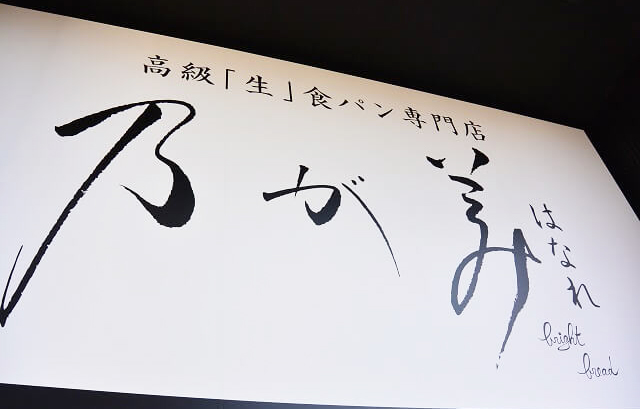 高級「生」食パン専門店
乃が美
はなれ
bright
bread